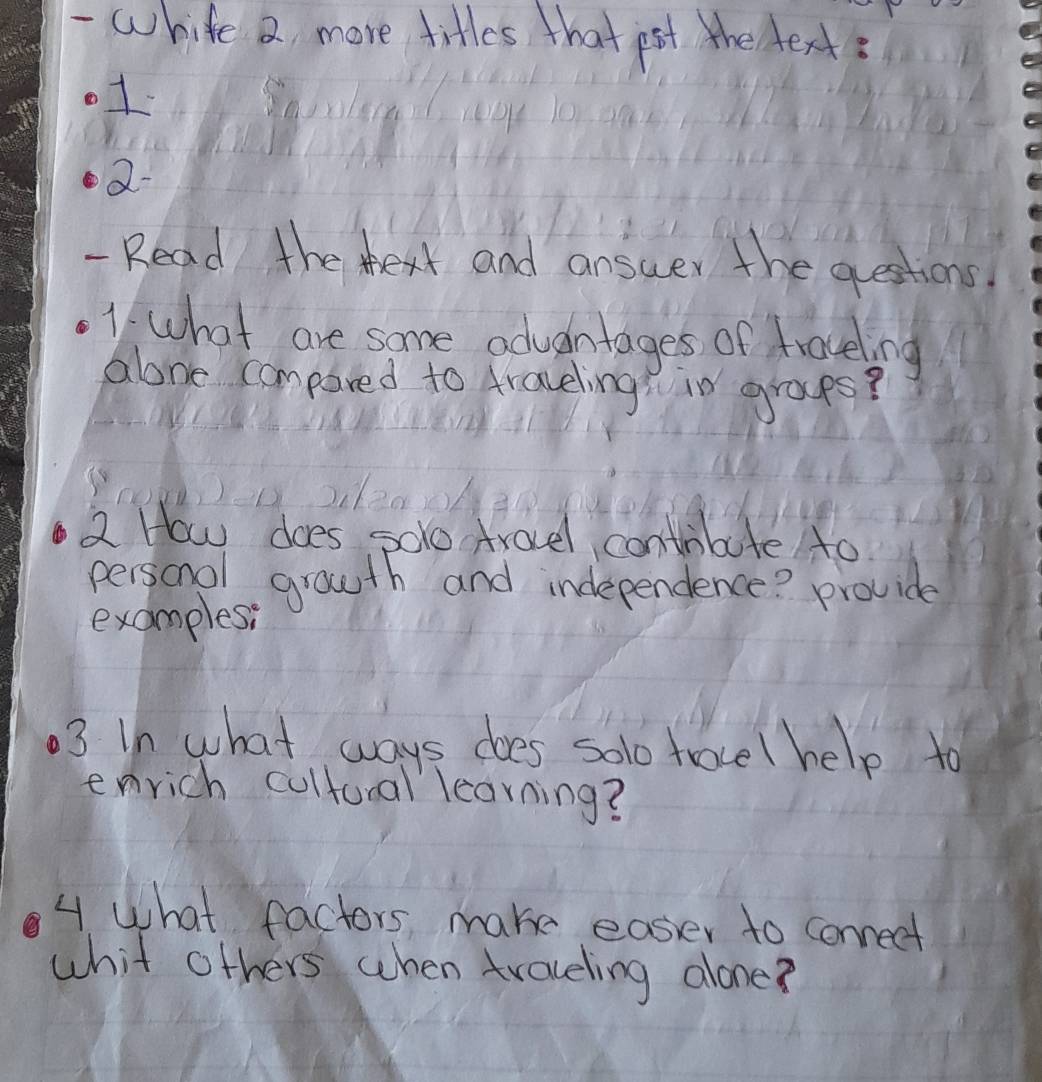 - White 2 more titles that pit the text:
• 1-
• 2-
- Read the text and answer the questions.
• 1- What are some advantages of traveling
alone compared to traveling in groups?
• 2 How does solo travel contribute to
personal growth and independence? provide
examples:
• 3 In what ways does solo travel help to
enrich cultural learning?
• 4 What factors make easier to connect
whit others when traveling alone?